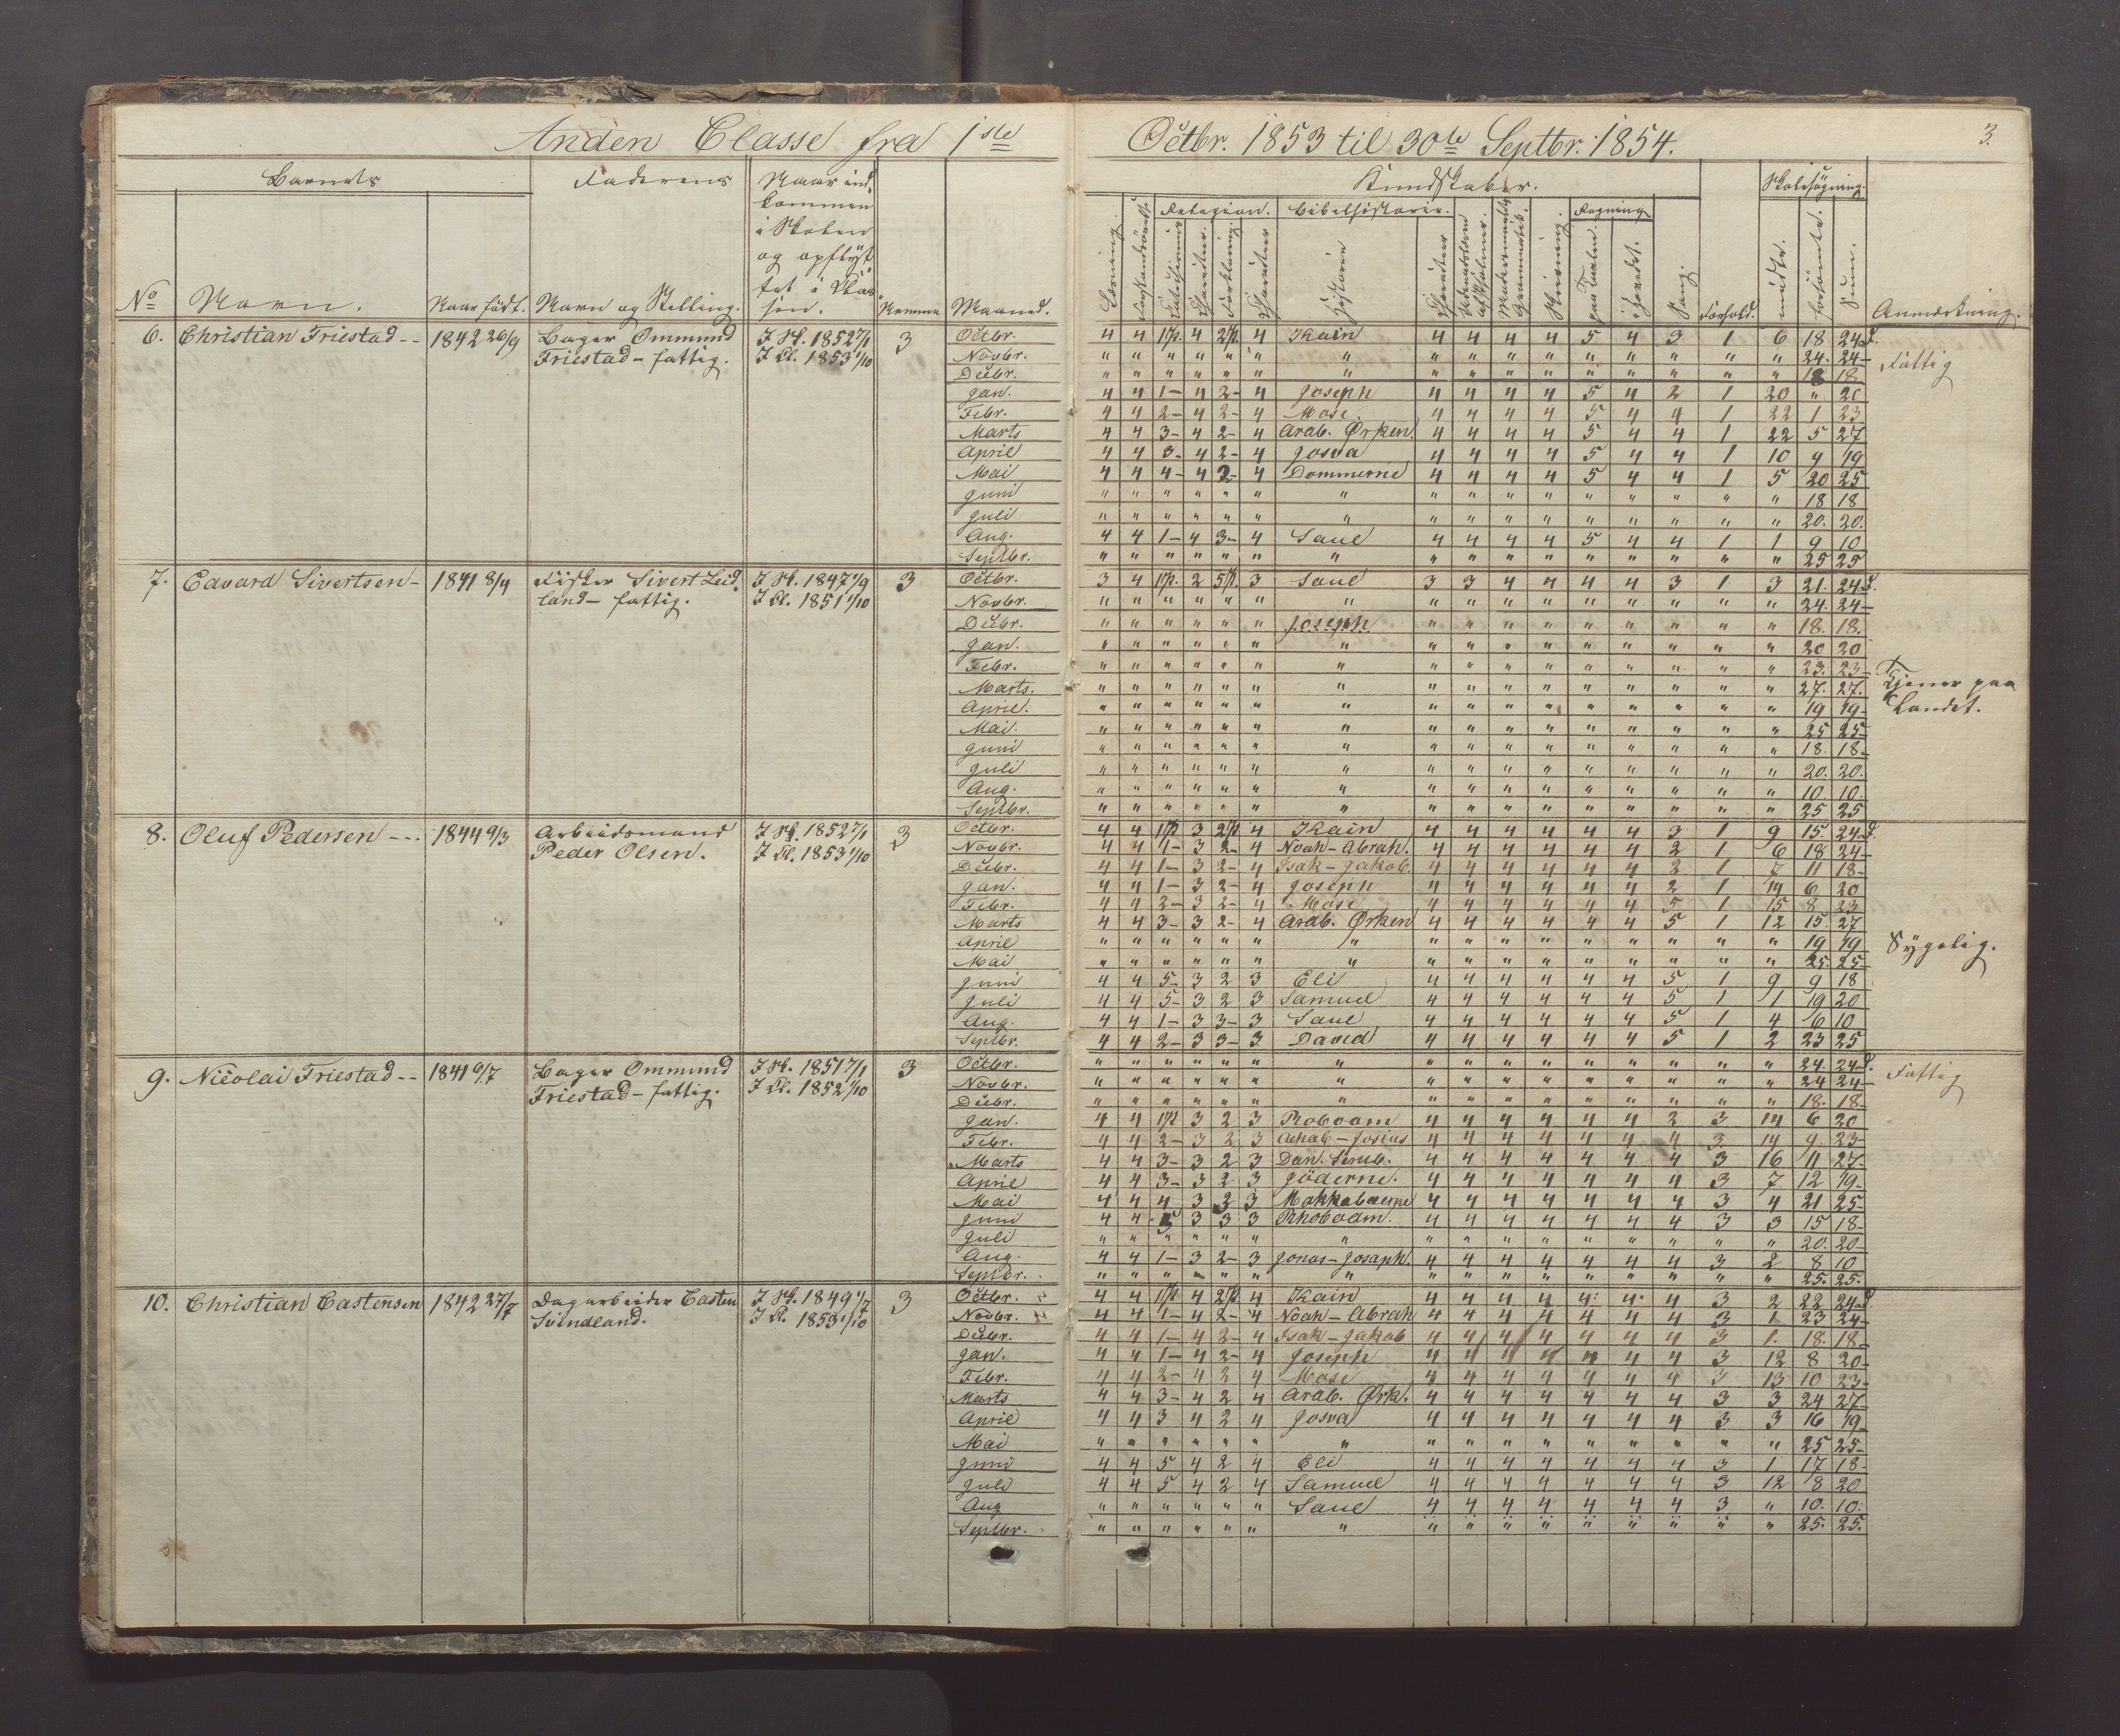 Anden Classe fra 1ste Octbr. 1853 til 30te Septbr. 1854. 3.
Barnets Faderens Naar ind- Kundskaber. Skolesøgning.
kommen
i Skolen Religion. Bibelhistorie. Regning
og opflyt-
tet i Clas-
No Navn. Naar født. Navn og Stilling. sen. Nummer Maaned. Læsning. Historie Skrivning. Sang. Forhold. mødte. forsømte. Sum. Anmærkning.
6. Christian Friestad -- 1842 26/9 Bager Ommund J Sk. 1852 7/1 3 Octbr. 4 4 1 p. 4 2 p. 4 Kain 4 4 4 4 5 4 3 1 6 18 24 d.
Friestad - fattig. J Cl. 1853 1/10 Novbr. " " " " " " " " " " " " " " " " 24. 24 - Fattig
Decbr. " " " " " " " " " " " " " " " " 18 18
Jan. 4 4 1- 4 2- 4 Joseph 4 4 4 4 5 4 2 1 20 " 20
Febr. 4 4 2- 4 2- 4 Mose. 4 4 4 4 5 4 4 1 22 1 23
Marts 4 4 3- 4 2- 4 Arab. Ørken. 4 4 4 4 5 4 4 1 22 5 27
April 4 4 3- 4 2- 4 Josva 4 4 4 4 5 4 4 1 10 9 19
Mai 4 4 4- 4 2- 4 Dommerne 4 4 4 4 5 4 4 1 5 20 25
Juni " " " " " " " " " " " " " " " " 18 18
Juli " " " " " " " " " " " " " " " " 20. 20.
Aug. 4 4 1- 4 3- 4 Saul 4 4 4 4 5 4 4 1 1 9 10
Septbr. " " " " " " " " " " " " " " " " 25 25
7. Edvard Sivertsen - 1841 8/4 Fisker Sivert Leid- J Sk. 1847 1/9 3 Octbr. 3 4 1 p. 2 5 p. 3 Saul 3 3 4 4 4 4 3 1 3 21. 24 d.
land - fattig. J Cl. 1851 1/10 Novbr. " " " " " " " " " " " " " " " " 24. 24 -
Decbr. " " " " " " Joseph " " " " " " " " " 18. 18.
Jan. " " " " " " " " " " " " " " " " 20 20
Febr. " " " " " " " " " " " " " " " " 23. 23 -
Marts. " " " " " " " " " " " " " " " " 27. 27. Tjener paa
April. " " " " " " " " " " " " " " " " 19 19 - Landet.
Mai. " " " " " " " " " " " " " " " " 25 25 -
Juni " " " " " " " " " " " " " " " " 18. 18.
Juli " " " " " " " " " " " " " " " " 20. 20.
Aug. " " " " " " " " " " " " " " " " 10. 10.
Septbr. " " " " " " " " " " " " " " " " 25 25
8. Oluf Pedersen --- 1844 9/3 Arbeidsmand J Sk. 1852 7/1 3 Octbr. 4 4 1 p 3 2 p. 4 Kain 4 4 4 4 4 4 3 1 9 15. 24 d.
Peder Olsen. J Cl. 1853 1/10 Novbr. 4 4 1- 3 2- 4 Noah - Abrah. 4 4 4 4 4 4 2 1 6 18 24 -
Decbr. 4 4 1- 3 2- 4 Isak - Jakob. 4 4 4 4 4 4 2 1 7 11 18 -
Jan. 4 4 1- 3 2- 4 Joseph 4 4 4 4 4 4 2 1 14 6 20
Febr. 4 4 2- 3 2- 4 Mose 4 4 4 4 4 4 5 1 15 8 23
Marts 4 4 3- 3 2- 4 Arab. Ørken 4 4 4 4 4 4 5 1 12 15. 27
April " " " " " " " " " " " " " " " " 19 19 - Sygelig.
Mai " " " " " " " " " " " " " " " " 25. 25 -
Juni 4 4 5- 3 2 3 Eli 4 4 4 4 4 4 5 1 9 9 18
Juli 4 4 5- 3 2 3 Samuel 4 4 4 4 4 4 5 1 1 19 20
Aug. 4 4 1- 3 3- 3 Saul 4 4 4 4 4 4 5 1 4 6 10
Septbr. 4 4 2- 3 3- 3 David 4 4 4 4 4 4 5 1 2 23 25
9. Nicolai Friestad -- 1841 9/7 Bager Ommund J Sk. 1851 7/1 3 Octbr. " " " " " " " " " " " " " " " " 24. 24 d.
Friestad - fattig. J Cl. 1852 1/10 Novbr. " " " " " " " " " " " " " " " " 24 24 - Fattig
Decbr. " " " " " " " " " " " " " " " " 18. 18 -
Jan. 4 4 1 p 3 2 3 Roboam 4 4 4 4 4 4 2 3 14 6 20
Febr. 4 4 2- 3 2 3 Achab - Josias 4 4 4 4 4 4 4 3 14 9 23 -
Marts 4 4 3- 3 2 3 Dan. 4 4 4 4 4 4 4 3 16 11 27 -
April 4 4 3- 3 2 3 Jöderne. 4 4 4 4 4 4 4 3 7 12 19 -
Mai 4 4 4 3 2 3 Makkabæerne 4 4 4 4 4 4 4 3 4 21 25 -
Juni 4 4 5 3 3 3 Rhoboam. 4 4 4 4 4 4 4 3 3 15 18 -
Juli " " " " " " " " " " " " " " " " 20. 20 -
Aug. 4 4 1- 3 2- 3 Jonas - Josaph. 4 4 4 4 4 4 4 3 2 8 10
Septbr. " " " " " " " " " " " " " " " " 25. 25.
10. Christian Castensen 1842 27/7 Dagarbeider Casten J Sk. 1849 1/7 3 Octbr. 4 4 1 p 4 2 p 4 Kain 4 4 4 4 4 4 4 3 2 22 24 d.
Svindland. J Cl. 1853 1/10 Novbr. 4 4 1- 4 2- 4 Noah - Abrah 4 4 4 4 4 4 4 3 1 23 24 -
Decbr. 4 4 1- 4 2- 4 Isak - Jakob 4 4 4 4 4 4 4 3 1. 18. 18 -
Jan. 4 4 1- 4 2- 4 Joseph 4 4 4 4 4 4 4 3 12 8 20 -
Febr. 4 4 2- 4 2 4 Mose 4 4 4 4 4 4 4 3 13 10 23 -
Marts 4 4 3- 4 2 4 Arab. Ørk. 4 4 4 4 4 4 4 3 3 24 27 -
April 4 4 3 4 2 4 Josva 4 4 4 4 4 4 4 3 3 16 19 -
Mai " " " " " " " " " " " " " " " " 25 25 -
Juni 4 4 5 4 2 4 Eli 4 4 4 4 4 4 4 3 1 17 18 -
Juli 4 4 5 4 2 4 Samuel 4 4 4 4 4 4 4 3 12 8 20
Aug " " " " " " Saul 4 4 4 4 4 4 4 3 " 10. 10.
Septbr. " " " " " " " " " " " " " " " " 25. 25.